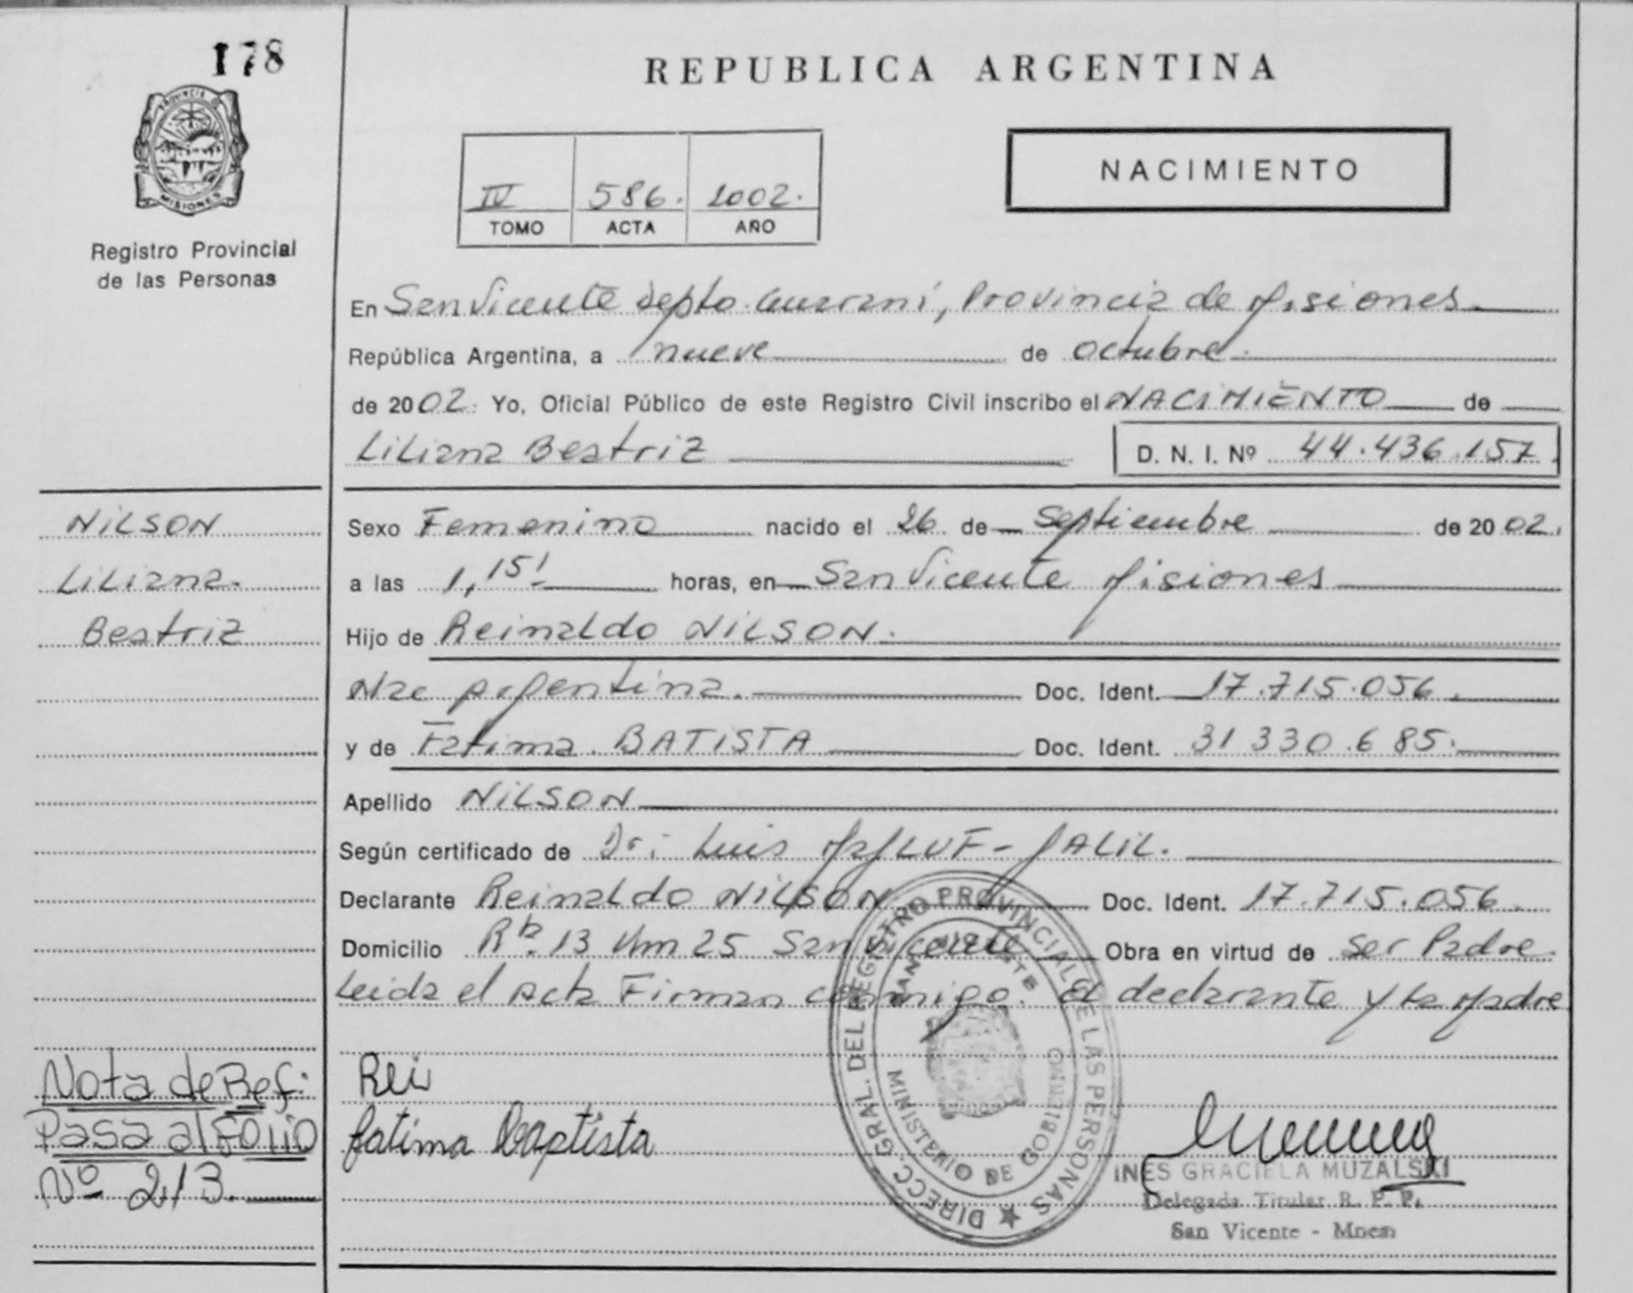 178
REPUBLICA ARGENTINA
PROVINCIA DE
MISIONES
Registro Provincial
de las Personas
NACIMIENTO
IV 586. 2002.
TOMO ACTA AÑO
En San Vicente Depto. Guaraní, Provincia de Misiones
República Argentina, a nueve de octubre.
de 2002. Yo, Oficial Público de este Registro Civil inscribo el NACIMIENTO de
Liliana Beatriz D. N. I. Nº 44.436.157
NILSON
Liliana.
Beatriz
Sexo Femenino nacido el 26 de Septiembre de 2002.
a las 1,15' horas, en San Vicente Misiones
Hijo de Reinaldo NILSON.
Nac Argentina. Doc. Ident. 17.715.056
y de Fatima. BATISTA Doc. Ident. 31 330.685.
Apellido NILSON
Según certificado de Dr: Luis JALIL.
Declarante Reinaldo NILSON Doc. Ident. 17.715.056
Domicilio 13 Km 25 San Vicente Obra en virtud de ser Padre.
Leida el Acta Firman conmigo. El declarante y la Madre
Nota de Ref:
Pasa al Folio
Nº 213.
Rei
fatima Baptista
DIRECC. GRAL. DEL REGISTRO PROVINCIAL DE LAS PERSONAS
SAN VICENTE
MINISTERIO DE GOBIERNO
INES GRACIELA MUZALSKI
Delegada Titular R. P. P.
San Vicente - Mnes